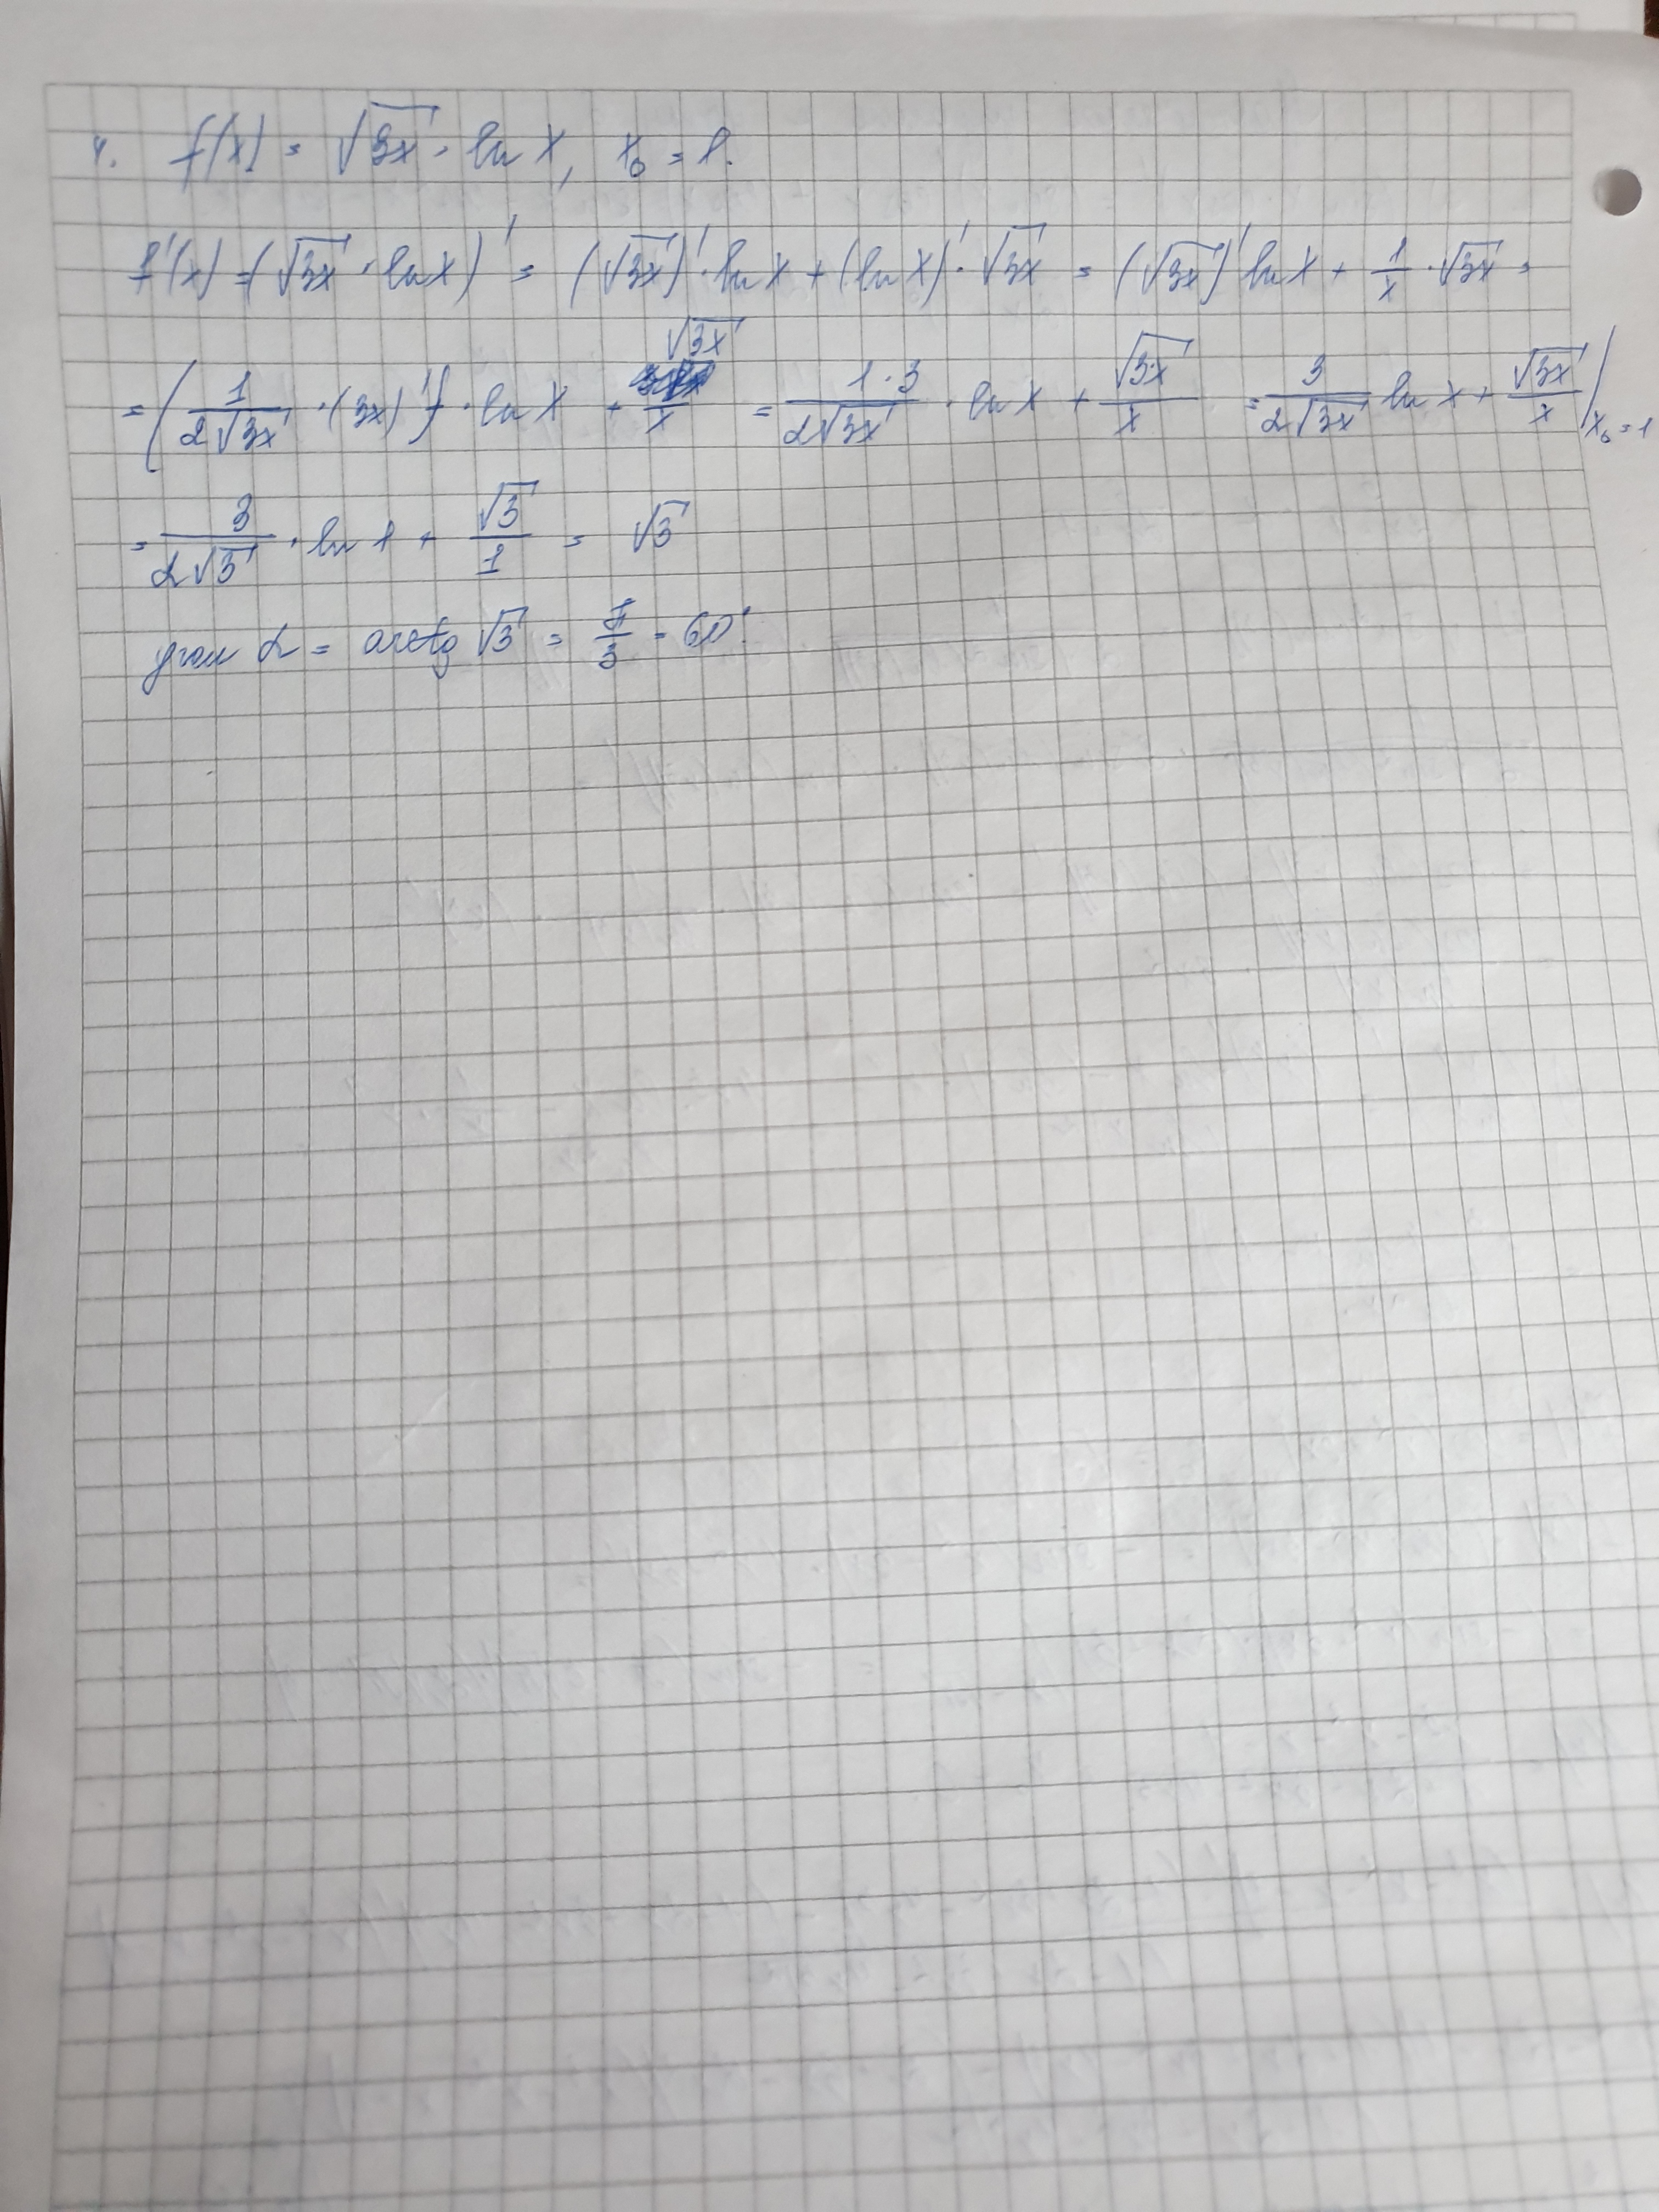 4. f(x) = √3x · ln x, x₀ = 1.
f'(x) = (√3x · ln x)' = (√3x)' · ln x + (ln x)' · √3x = (√3x)' ln x + 1/x · √3x =
= (1/(2√3x) · (3x)') · ln x + √3x/x = (1·3)/(2√3x) · ln x + √3x/x = 3/(2√3x) ln x + √3x/x |x₀=1
= 3/(2√3) · ln 1 + √3/1 = √3
угол α = arctg √3 = π/3 = 60°.